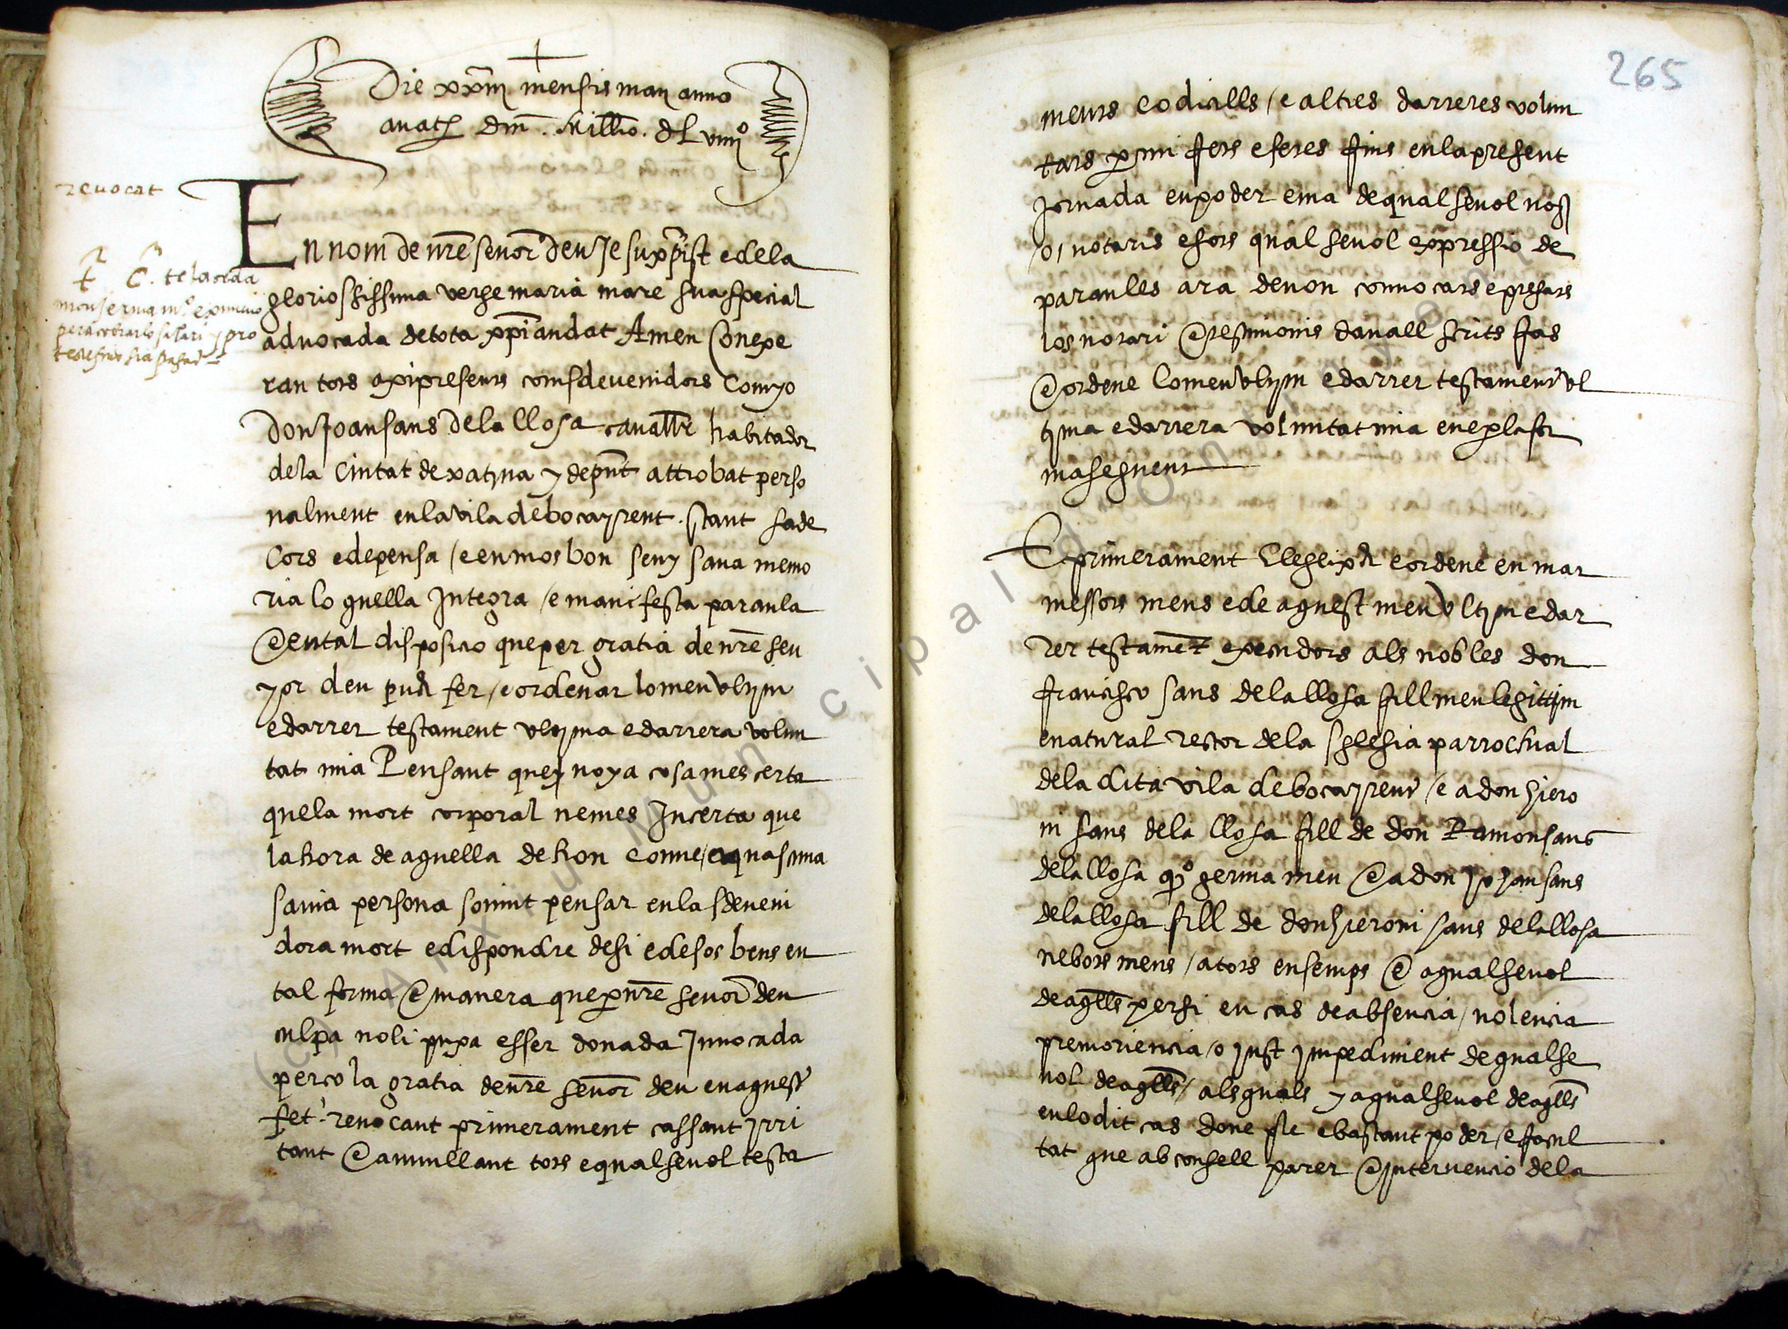 Die xxiii mensis maii anno
a natte Dm̄. Millo. dLviiiiº
revocat
En nom de nr̄e senor deu Jesuxp̄ist e dela
gloriosissima verge maria mare sua special
advocada de tota xp̄iandat Amen Conexe
ran tots axi presents coms devenidors Com yo
Don Joan sans dela llosa cavallr habitador
dela Ciutat de xativa y de pn̄t attrobat perso
nalment en la vila de bocayrent. stant sa de
Cors e de pensa / e en mos bon seny sana memo
ria loquella Integra / e manifesta paraula
E en tal disposicio que per gratia de nr̄e sen
yor deu puch fer / e ordenar lo meu ultim
e darrer testament ultima e darrera volun
tat mia Pensant que y no ya cosa mes certa
que la mort corporal ne mes Incerta que
la hora de aquella de hon cove / a quascuna
savia persona sovint pensar en la sdeveni
dora mort e dispondre de si e de sos bens en
tal forma E manera que per nr̄e senor deu
culpa no li puxa esser donada Invocada
perco la gratia de nr̄e senor deu en aquest
fet. revocant primerament cassant irri
tant E anullant tots e qualsevol testa
265
ments codicills / e altres darreres volun
tats per mi fets e fetes fins en la present
jornada en poder e ma de qualsevol not
o, notaris e sots qualsevol expressio de
paraules ara de non convocats e presents
los notari E testimonis davall scrits fas
E ordene lo meu ultim e darrer testament ul
tima e darrera voluntat mia en e per la for
ma seguent
E primerament Elegeixch e ordene en mar
messors meus e de aquest meu ultim e dar
rer testament executors als nobles don
francisco sans dela llosa fill meu legittim
e natural rector dela sglesia parrochial
dela dita vila de bocayrent / e a don hiero
ni sans dela llosa fill de don Ramon sans
dela llosa qº germa meu E a don Johan sans
dela llosa fill de don hieroni sans dela llosa
nebots meus / a tots ensemps E a qualsevol
de aqlls per si en cas de absencia / nolencia
premoriencia / o just impediment de qualse
vol de aqlls / als quals y a qualsevol de aqlls
en lo dit cas done ple e bastant poder / e facul
tat que ab consell parer E intervencio dela
(c) Arxiu Municipal d'Ontinyent